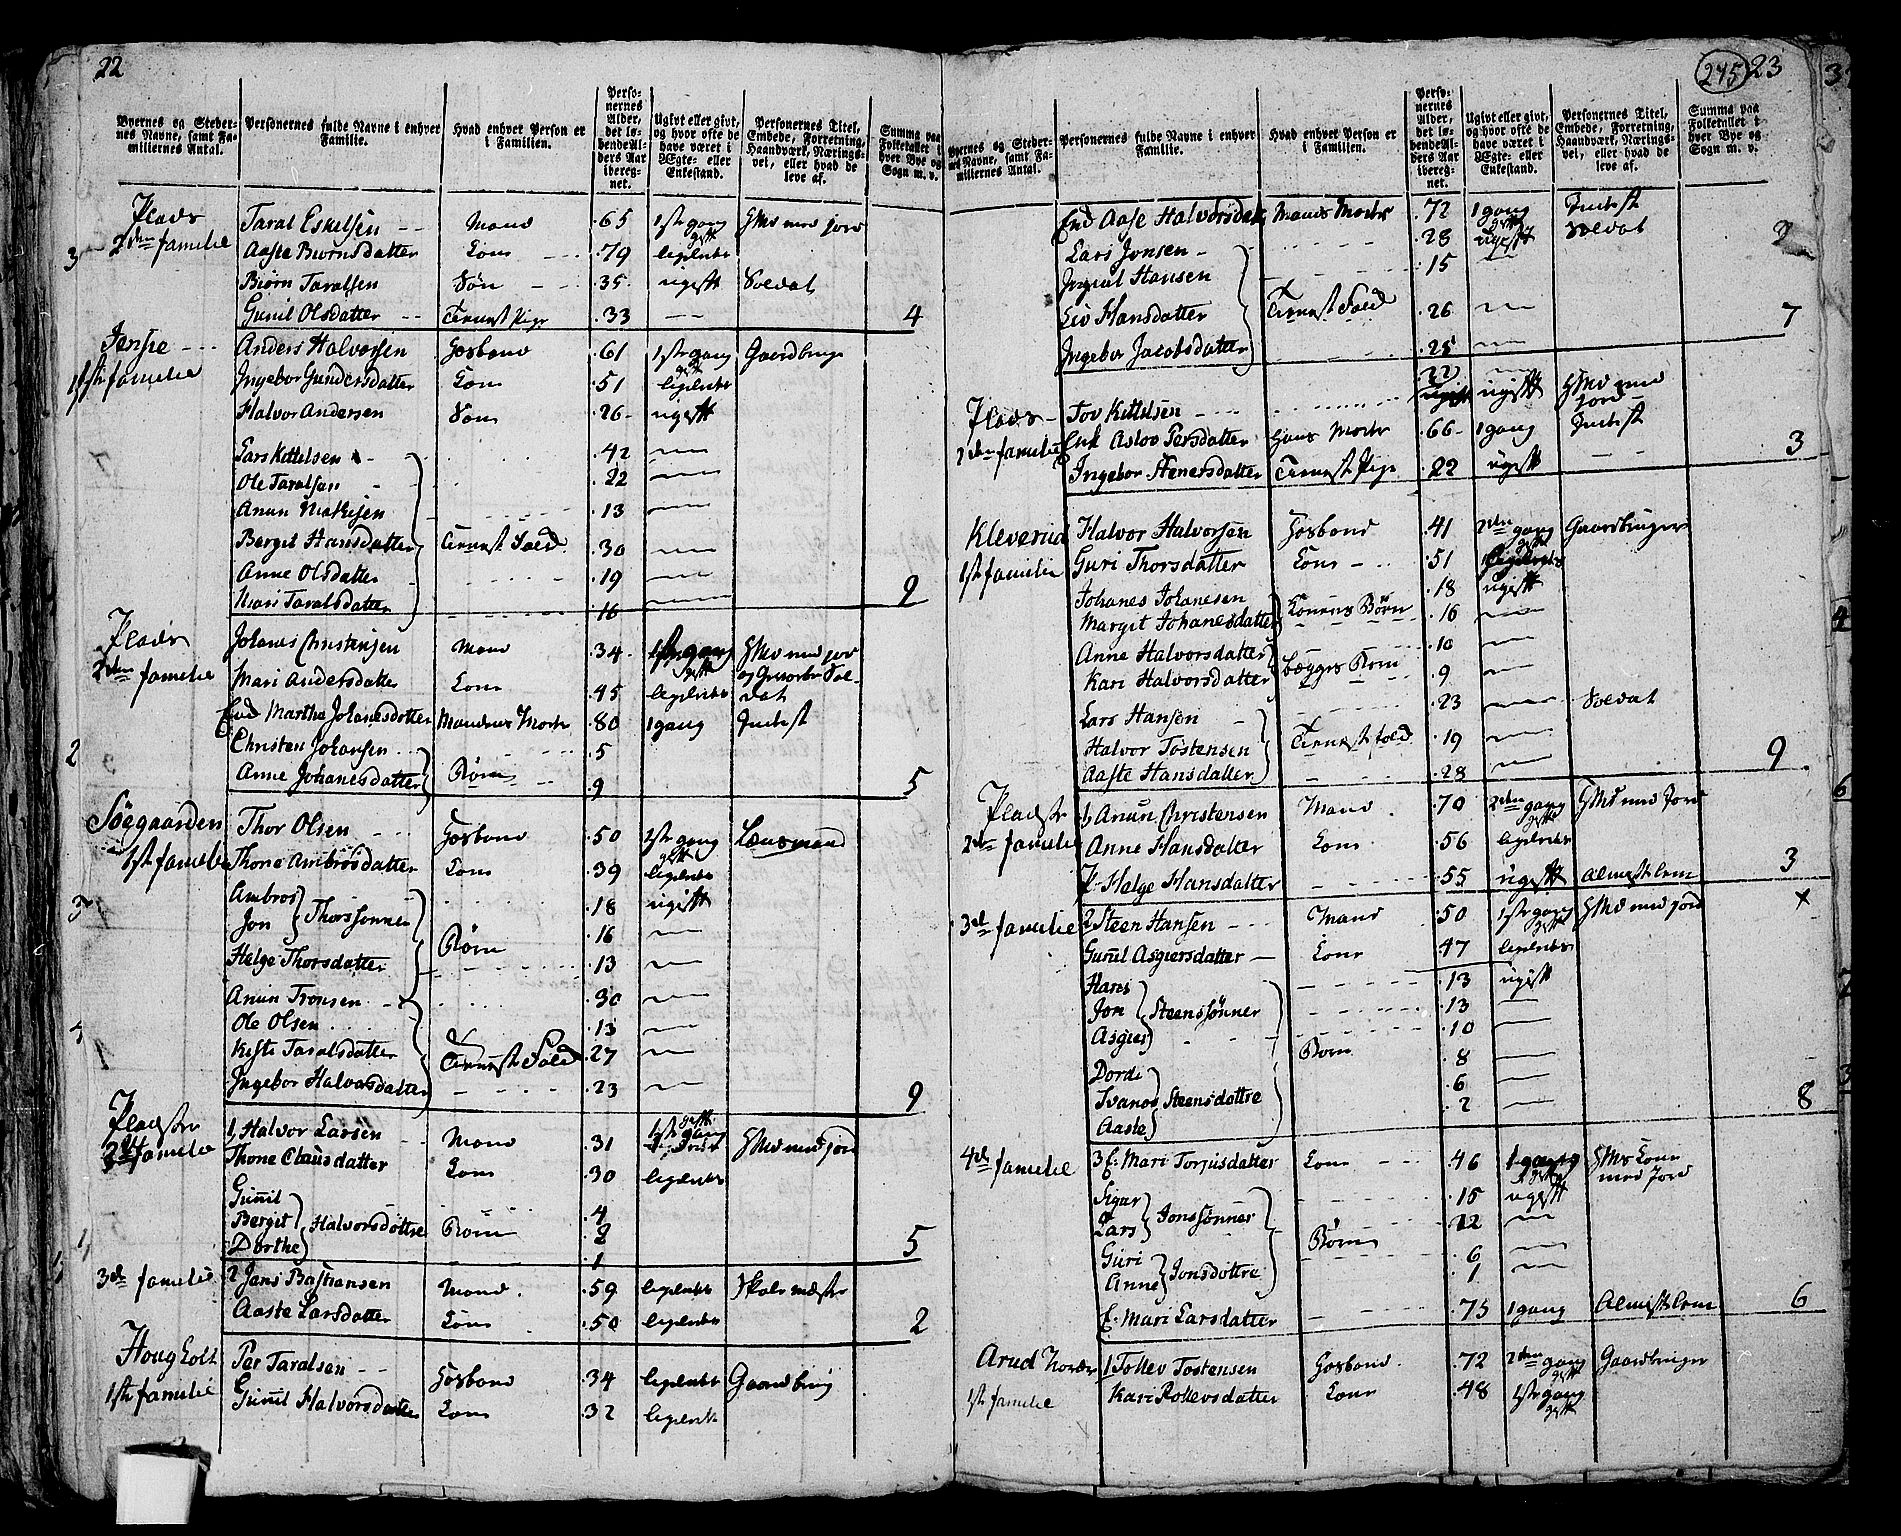 22
Byernes og Stedernes Navne, samt Familiernes Antal.
Personernes fulde Navne i enhver Familie.
Hvad enhver Person er i Familien.
Personernes Alder, det løbende Alders Aar iberegnet.
Ugivt eller givt, og hvor ofte de have været i Ægte- eller Enkestand.
Personernes Titel, Embede, Forretning, Haandværk, Næringsvei, eller hvad de leve af.
Summa paa Folketallet i hver Bye og Sogn m. v.
Plads 2den familie Taral Eskelsen Mand 65 1ste gang gift HMd med jord
Aaste Biørnsdatter Kone 79 ligeledes
Biørn Taralsen Søn 35 ugift Soldat
Gunil Olsdatter Tienest Pige 33 4
Anders Halvorsen Hosbond 61 1ste gang gift Gaardbruger
1ste familie Ingebor Gundersdatter Kone 51 ligeledes
Halvor Andersen Søn 26 ugift
Lars Kittelsen 42
Ole Taralsen 22
Anun 13
Bergit Hansdatter Tienest Folk 30
Anne Olsdatter 19
Mari Taralsdatter 16 9
Plads Johanes Christensen Mand 34 1ste gang gift HMd med jord
2den familie Mari Andersdatter Kone 45 ligeledes og Soldat
Enk Martha Johanesdotter Mandens Moder 80 1 gang Inderst
Christen Johansen 5
Anne Johanesdatter Børn 9 5
Søegaarden Thor Olsen Hosbond 50 1ste gang gift Lensmand
1ste familie Thone Ambrosdatter Kone 39 ligeledes
Ambros 18 ugift
Jon Thorssønner 16
Helge Thorsdatter Børn 13
Anun Tronsen 30
Ole Olsen 13
Kiste Taralsdatter Tienest Folk 27
Ingebor Halvorsdatter 23 9
Pladser
2den familie 1, Halvor Larsen Mand 31 1ste gang gift HMd med jord
Thone Clausdatter Kone 30 ligeledes
Gunil 4
Bergit Halvorsdøttre Børn 2
Dorthe 1 5
3die familie 2 Jens Bastiansen Mand 59 ligeledes Skolemæster
Aaste Larsdatter Kone 50 ligeledes 2
Hougholt Per Taralsen Hosbond 34 ligeledes Gaardbrug
1ste familie Gunil Halvorsdatter Kone 32 ligeledes
245 23
Byernes og Stedernes Navne, samt Familiernes Antal.
Personernes fulde Navne i enhver Familie.
Hvad enhver Person er i Familien.
Personernes Alder, det løbende Alders Aar iberegnet.
Ugivt eller givt, og hvor ofte de have været i Ægte- eller Enkestand.
Personernes Titel, Embede, Forretning, Haandværk, Næringsvei, eller hvad de leve af.
Summa paa Folketallet i hver Bye og Sogn m. v.
Enk Aase Halvorsdat Mands Moder 72 1 gang gift Inderst
Lars Jonsen 28 ugift Soldat
Hansen 15
Liv Hansdatter Tienest Folk 26
Ingebor Jacobsdatter 25 7
Plads Tov Kittelsen 22 ugift HMd med jord
2den familie Enk Aslov Persdatter Hans Moder 66 1 gang Inderst
Ingebor Stenersdatter Tienest Pige 22 ugift 3
Kleverud Halvor Halvorsen Hosbond 41 2den gang gift Gaardbruger
1ste familie Guri Thorsdatter Kone 51 ligeledes
Johanes Johanesen 18 ugift
Margit Johanesdatter Konens Børn 16
Anne Halvorsdatter 10
Kari Halvorsdatter begges Børn 9
Lars Hansen 23 Soldat
Halvor Tostensen Tienest folk 19
Aaste Hansdatter 28 9
Pladser 1, Anun Christensen Mand 70 2den gang gift HMd med Jord
2den familie Anne Hansdatter Kone 56 ligeledes
P. Helge Hansdatter 55 ugift Almisselem 3
3die familie 2 Steen Hansen Mand 50 1ste gang gift HMd med jord x
Gunil Asgiersdatter Kone 47 ligeledes
Hans 13 ugift
Jon Steenssønner 13
Asgier 10
Dorde Børn 8
Ivanor Steensdøttre 6
Aaste 2 8
4de familie 3 E. Mari Torjusdatter Kone 46 1 gang gift HMds Kone med Jord
Sigur 15 ugift
Lars Jonssønner 12
Guri Børn 6
Anne Jonsdøttre 1
E. Mari Larsdatter 75 1 gang Almisselem 6
Arud 1 Tollev Tostensen Hosbond 72 2den gang gift Gaardbruger
1ste familie Kari Rollevsdatter Kone 48 1ste gang gift